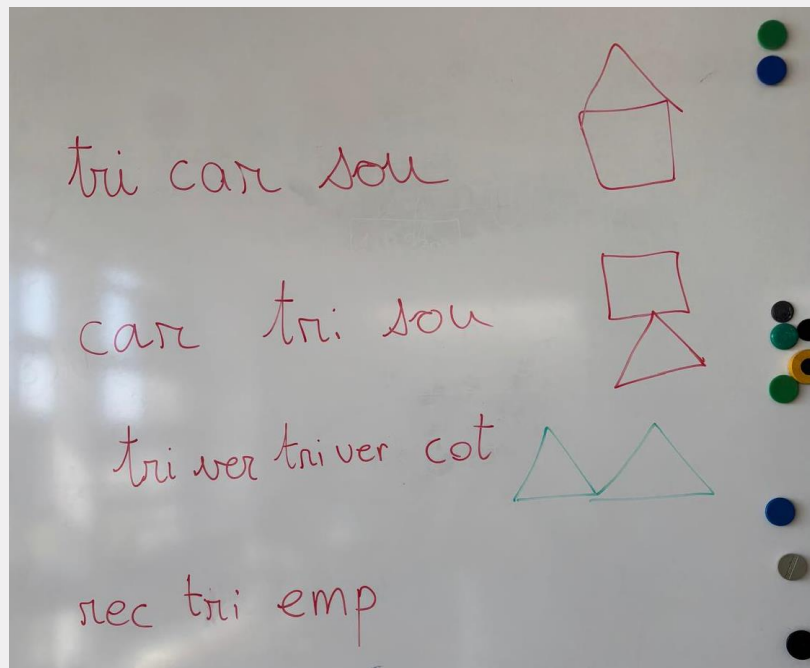 tri car sou
car tri sou
tri ver tri ver cot
rec tri emp